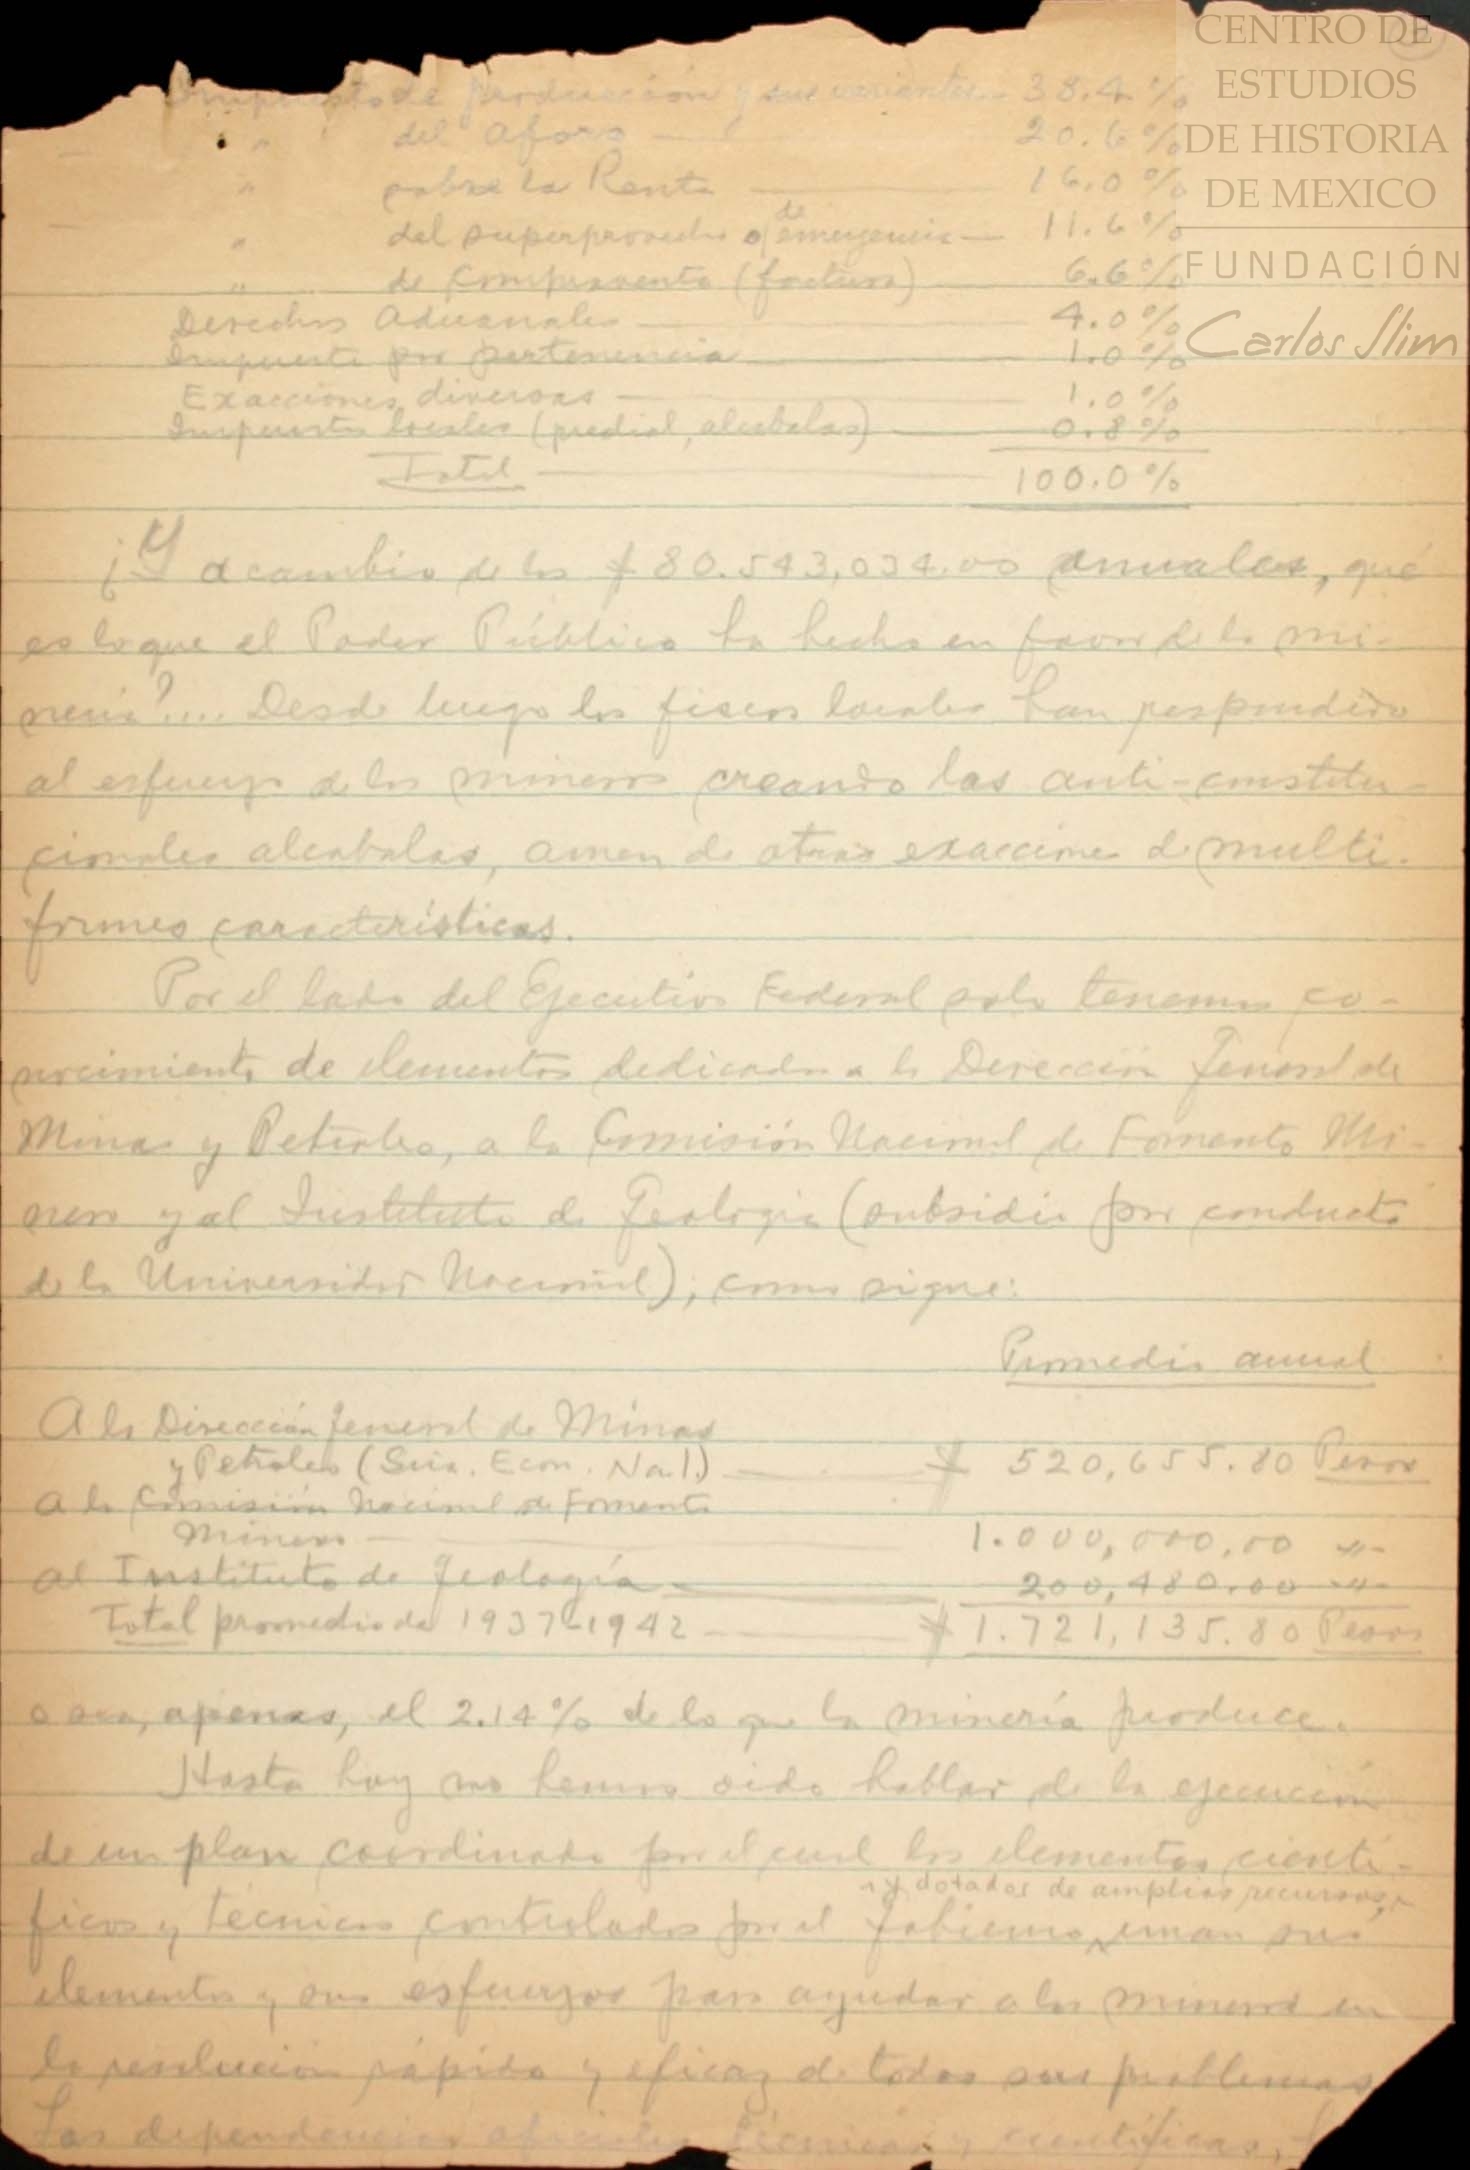 CENTRO DE
ESTUDIOS
DE HISTORIA
DE MEXICO
FUNDACIÓN
Carlos Slim
Impuesto de producción y sus variantes 38.4 %
" del aforo — 20.6 %
" sobre la Renta — 16.0 %
" del superprovecho o de emergencia — 11.6 %
" de compraventa (factura) — 6.6 %
Derechos Aduanales — 4.0 %
Impuesto por pertenencia — 1.0 %
Exacciones diversas — 1.0 %
Impuestos locales (predial, alcabalas) — 0.8 %
Total — 100.0 %
¡Y a cambio de los $ 80.543,034.00 anuales, qué
es lo que el Poder Público ha hecho en favor de la mi-
nería?.... Desde luego los fiscos locales han respondido
al esfuerzo de los mineros creando las anti-constitu-
cionales alcabalas, amen de otras exacciones de multi-
formes características.
Por el lado del Ejecutivo Federal solo tenemos co-
nocimiento de elementos dedicados a la Dirección General de
Minas y Petroleo, a la Comisión Nacional de Fomento Mi-
nero y al Instituto de Geología (subsidio por conducto
de la Universidad Nacional); como sigue:
Promedio anual
A la Dirección General de Minas
y Petroleo (Sria. Econ. Nal.) — $ 520,655.80 Pesos
A la Comisión Nacional de Fomento
Minero — 1.000,000.00 -"-
Al Instituto de Geología — 200,480.00 -"-
Total promedio de 1937-1942 — $ 1.721,135.80 Pesos
o sea, apenas, el 2.14% de lo que la minería produce.
Hasta hoy no hemos oido hablar de la ejecución
de un plan coordinado por el cual los elementos cientí-
y dotados de amplios recursos,
ficos y técnicos controlados por el Gobierno, unan sus
elementos y sus esfuerzos para ayudar a los mineros en
la resolución rápida y eficaz de todos sus problemas.
Las dependencias oficiales técnicas y científicas,